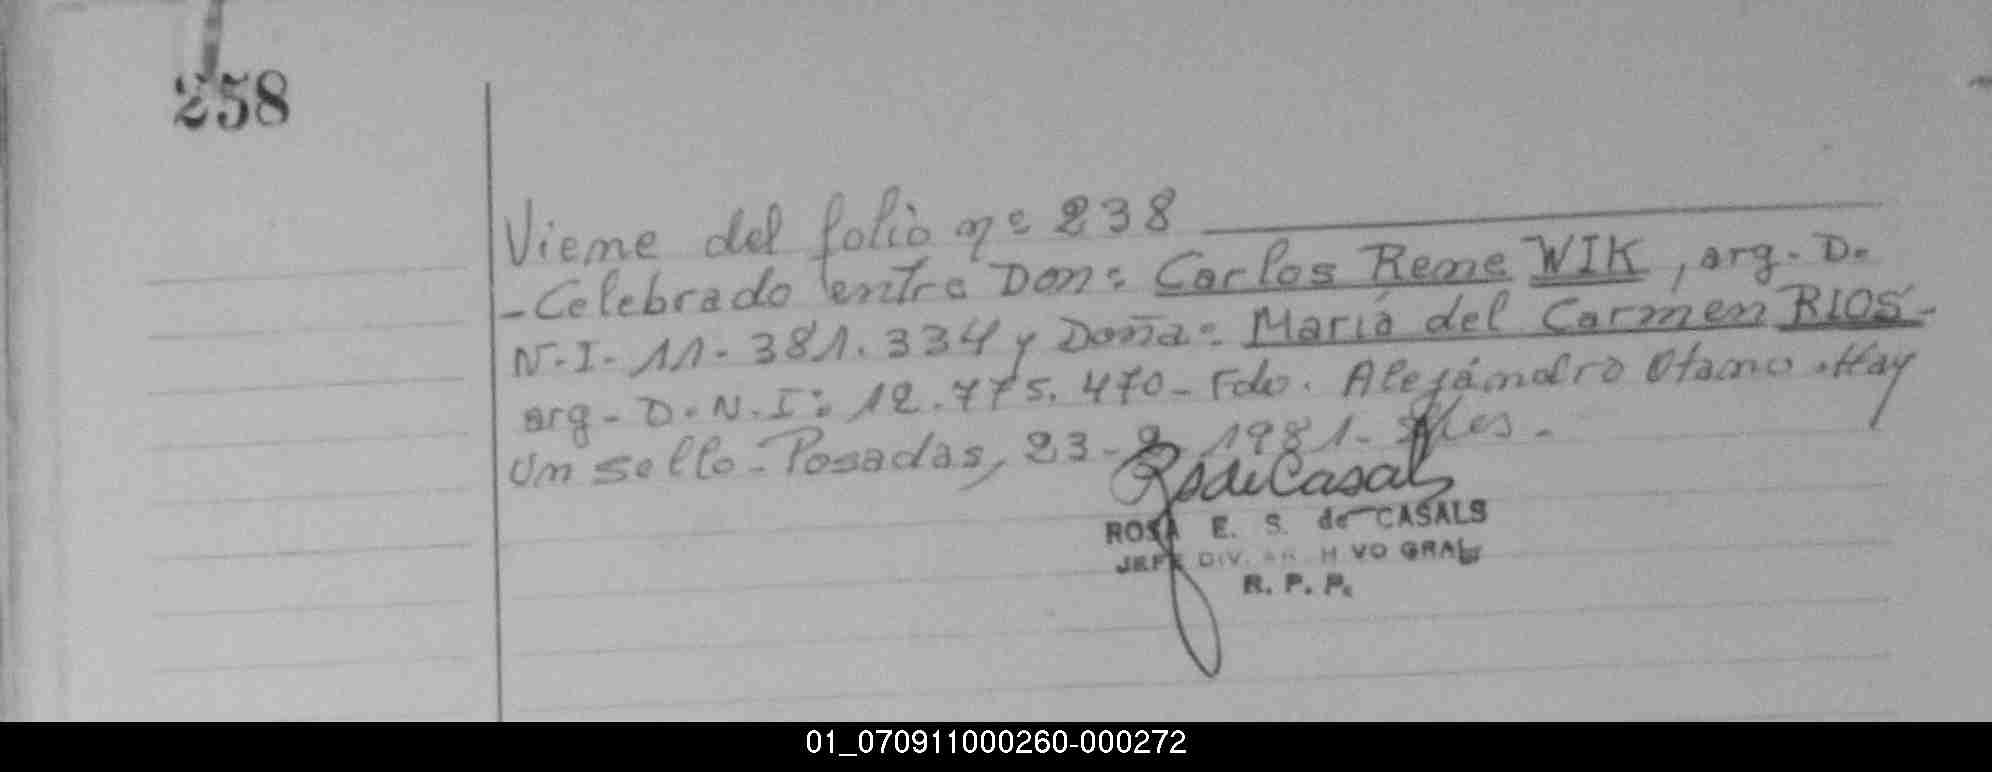 258
Viene del folio nº 238
- Celebrado entre Don: Carlos Rene WIK, arg. D.
N.I- 11.381.334 y Doña: María del Carmen RIOS -
arg- D.N.I: 12.775.470- Fdo. Alejandro Otamo. Hay
Un sello- Posadas, 23-9-1981-
RSdeCasals
ROSA E. S. de CASALS
JEFE DIV. AR H VO GRAL
R. P. P.
01_070911000260-000272